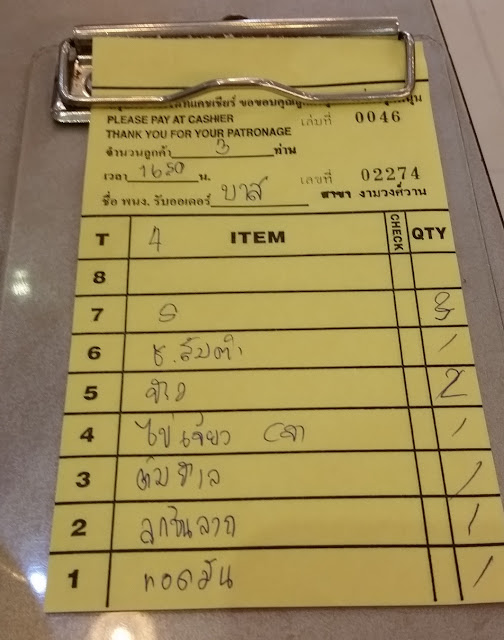 PLEASE PAY AT CASHIER เล่มที่ 0046
THANK YOU FOR YOUR PATRONAGE
จำนวนลูกค้า 3 ท่าน
เวลา 1650 น. เลขที่ 02274
ชื่อ พนง. รับออเดอร์ บาส สาขา งามวงศ์วาน
T 4 ITEM CHECK QTY
8
7 3
6 ช.ส้มตำ 1
5 ข้าว 2
4 ไข่เจียว 1
3 ต้มยำ 1
2 ลูกชิ้นลาด 1
1 ทอดมัน 1